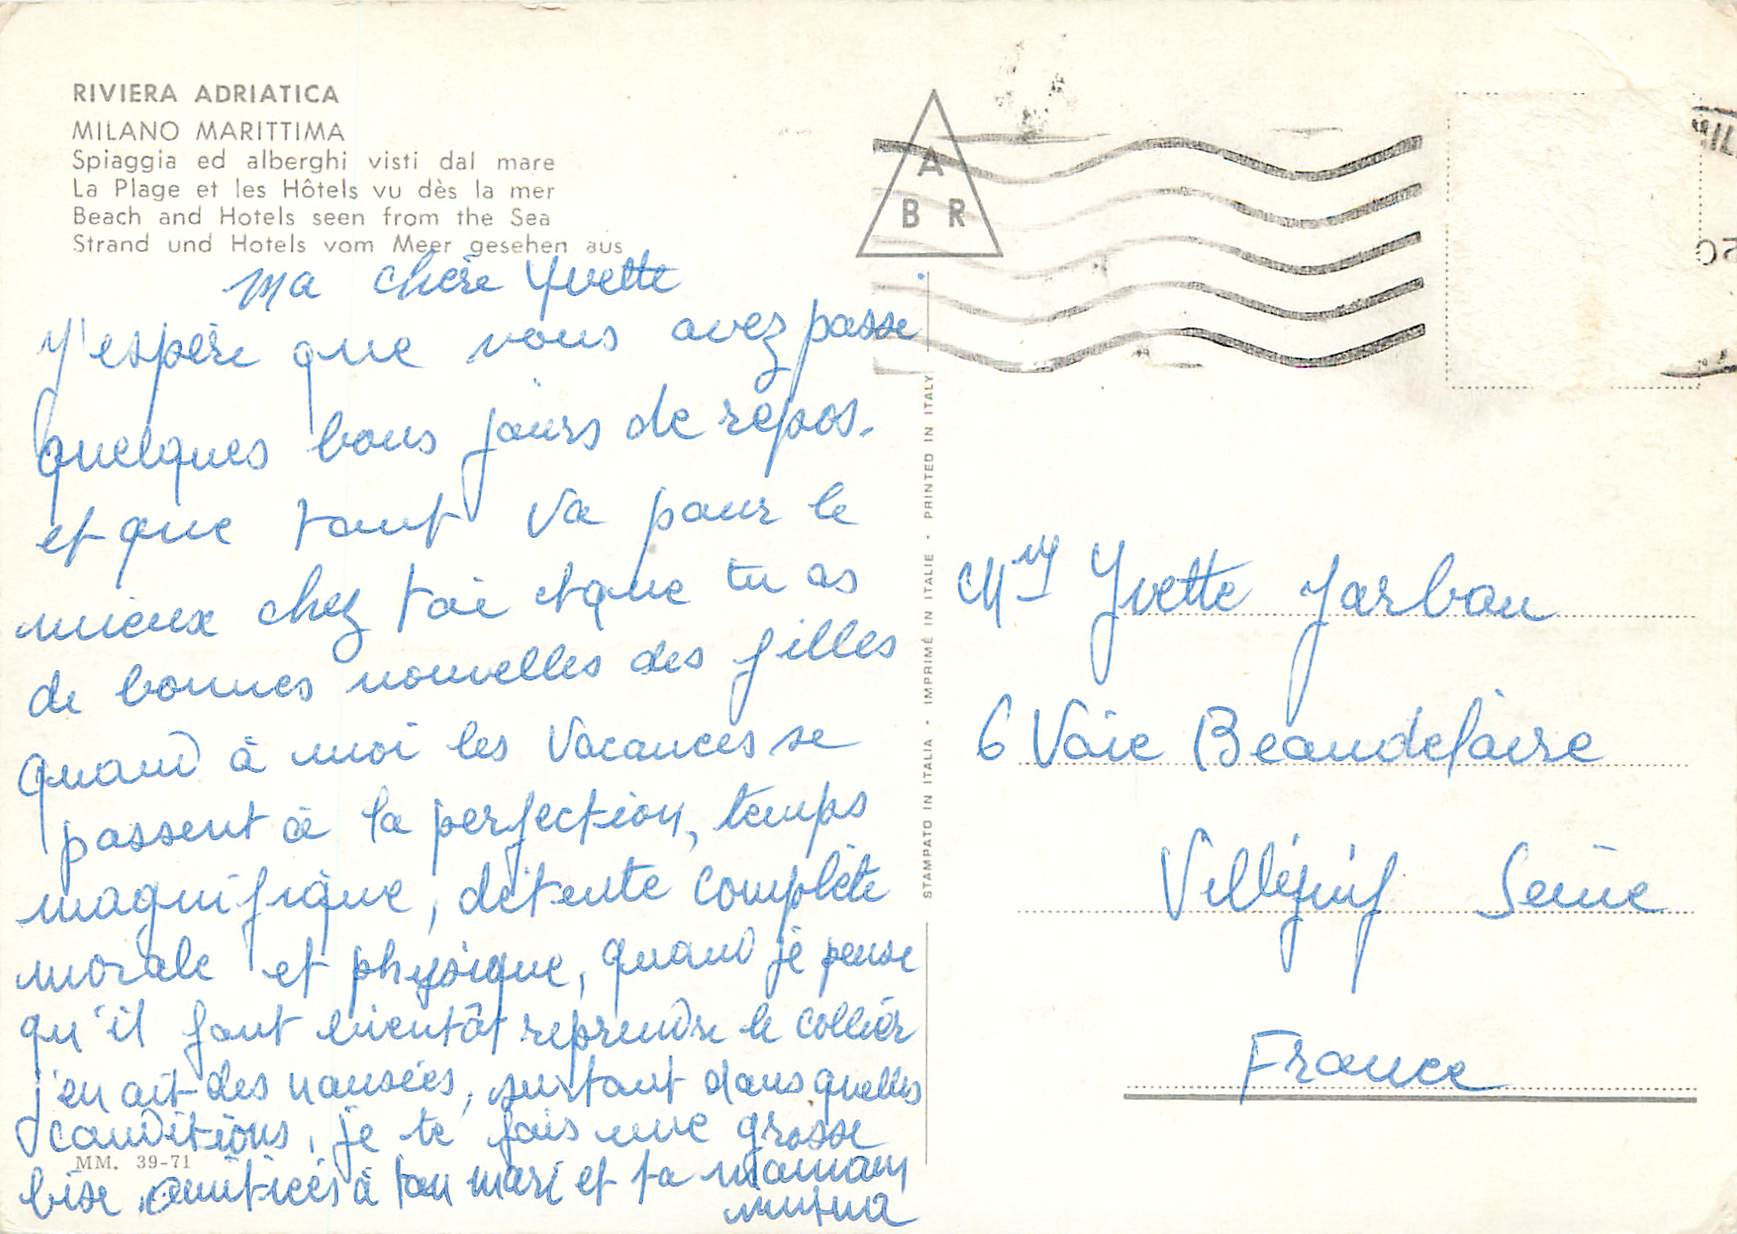 RIVIERA ADRIATICA
MILANO MARITTIMA
Spiaggia ed alberghi visti dal mare
La Plage et les Hôtels vu dès la mer
Beach and Hotels seen from the Sea
Strand und Hotels vom Meer gesehen aus
A
B R
ma chère Yvette
J'espère que vous avez passe
quelques bons jours de repos.
et que tout va pour le
mieux chez toi et que tu as
de bonnes nouvelles des filles
quand à moi les vacances se
passent à la perfection, temps
magnifique, détente complète
morale et physique, quand je pense
qu'il faut bientôt reprendre le collier
j'en ait des nausées, surtout dans quelles
conditions, je te fais une grosse
bise, amitiées à ton mari et ta maman
MM. 39-71
STAMPATO IN ITALIA - IMPRIMÉ IN ITALIE - PRINTED IN ITALY
Yvette Jarbou
6 Voie Beaudelaire
Villéjuif Seine
France